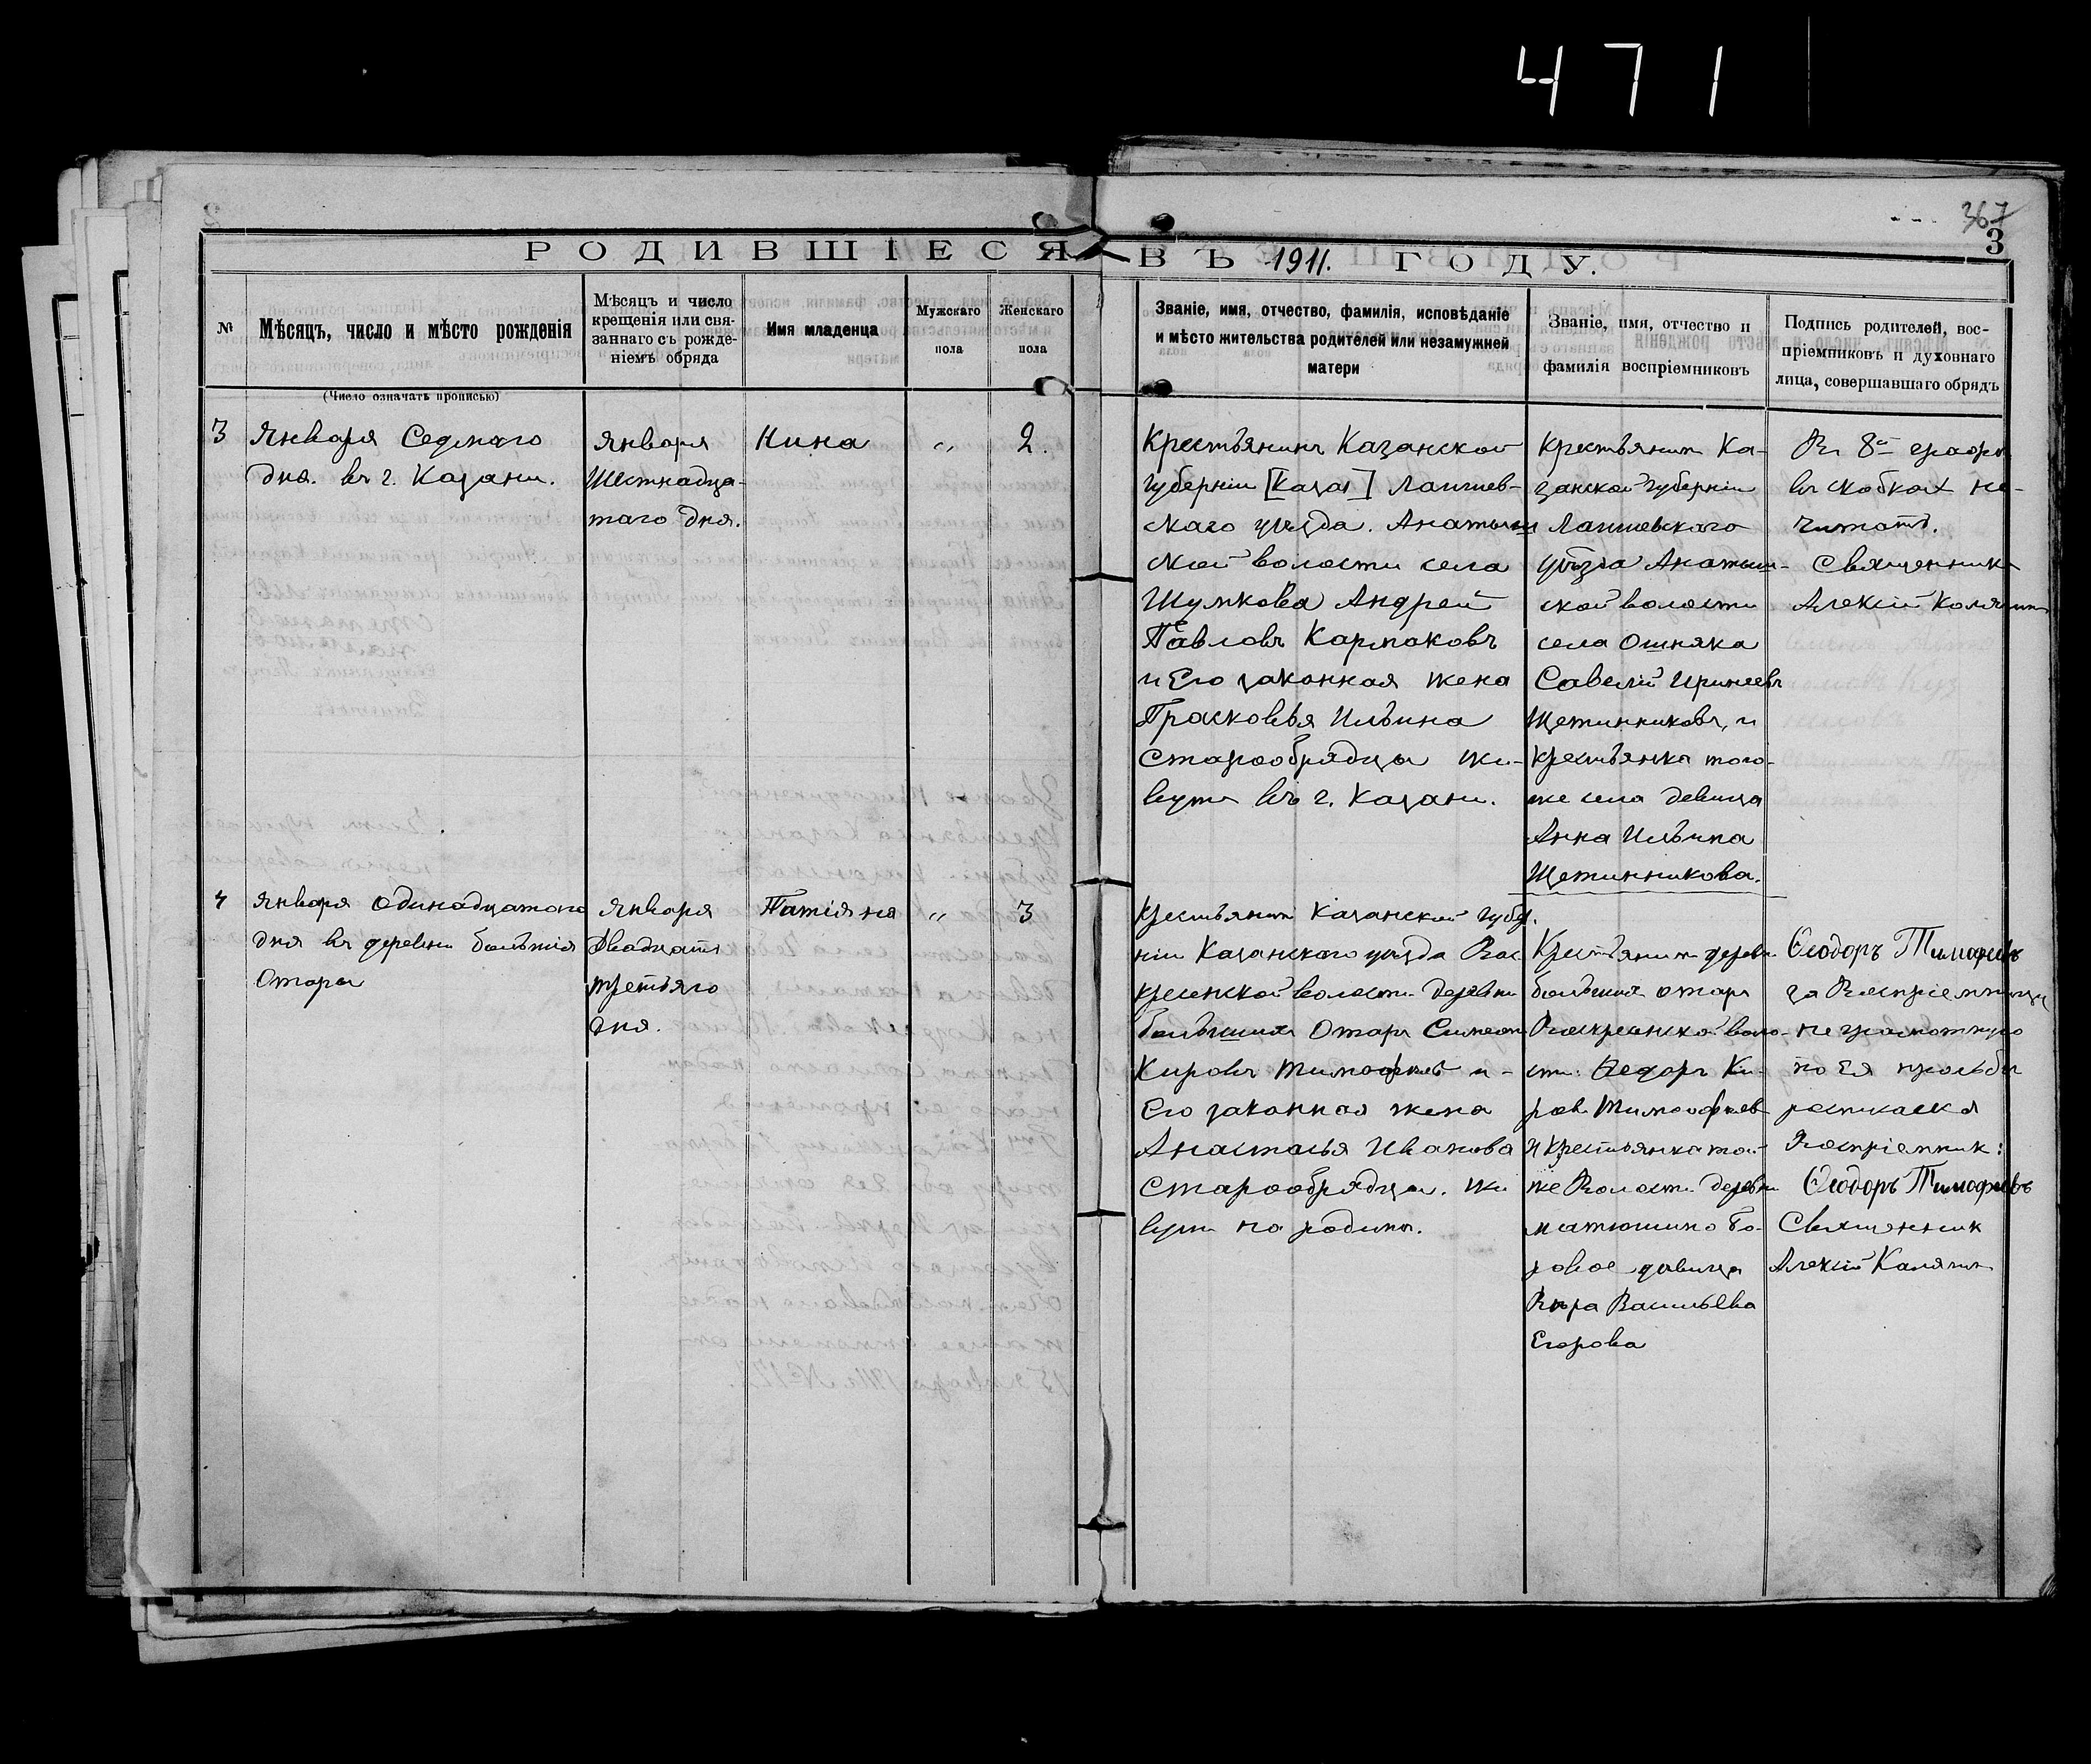 471
367
3
РОДИВШІЕСЯ ВЪ 1911. ГОДУ.
№
Мѣсяцъ, число и мѣсто рожденія
(Число означать прописью)
Мѣсяцъ и число
крещенія или свя-
заннаго съ рожде-
ніемъ обряда
Имя младенца
Мужскаго
пола
Женскаго
пола
Званіе, имя, отчество, фамилія, исповѣданіе
и мѣсто жительства родителей или незамужней
матери
Званіе, имя, отчество и
фамилія воспріемниковъ
Подпись родителей, вос-
пріемниковъ и духовнаго
лица, совершавшаго обрядъ
3
Января Седмаго
дня. въ г. Казани.
Января
Шестнадца-
таго дня.
Нина
"
2.
Крестьянинъ Казанской
губерніи [Казан] Лаишев-
скаго уѣзда. Анатыш
ской волости села
Шумкова Андрей
Павловъ Карпаковъ
и Его законная жена
Прасковья Ильина
Старообрядцы жи-
вутъ въ г. Казани.
Крестьянинъ Ка-
занской губерніи
Лаишевскаго
уѣзда Анатыш-
ской волости
села Ошняка
Савелій Иринеевъ
Щетинниковъ, и
крестьянка того-
же села девица
Анна Ильина
Щетинникова.
Въ 8й графѣ
въ скобках не-
читать.
Священникъ
Алексій Калягинъ
4
Января одинадцатого
дня въ деревни большія
Отары
Января
Двадцать
третьяго
дня.
Татіяна
"
3
Крестьянинъ Казанской губер.
ніи Казанскаго уѣзда Вос
кресенской волости деревни
большихъ Отаръ Симеонъ
Кировъ Тимофѣевъ и-
Его законная жена
Анастасья Иванова
Старообрядцы. жи
вутъ на родинѣ.
Крестьянинъ дерев.
большихъ отаръ
Воскресенской воло-
сти: Федоръ Ки-
ров. Тимоофѣев
и крестьянка той-
же Волости деревни
матюшино Бо-
ровое девица
Вѣра Васильева
Егорова
Ѳеодоръ Тимофеевъ
за Воспріемницу
не грамотную
по Ея просьбѣ
росписался
Воспріемник:
Ѳеодоръ Тимофеевъ
Священник
Алексій Калягин